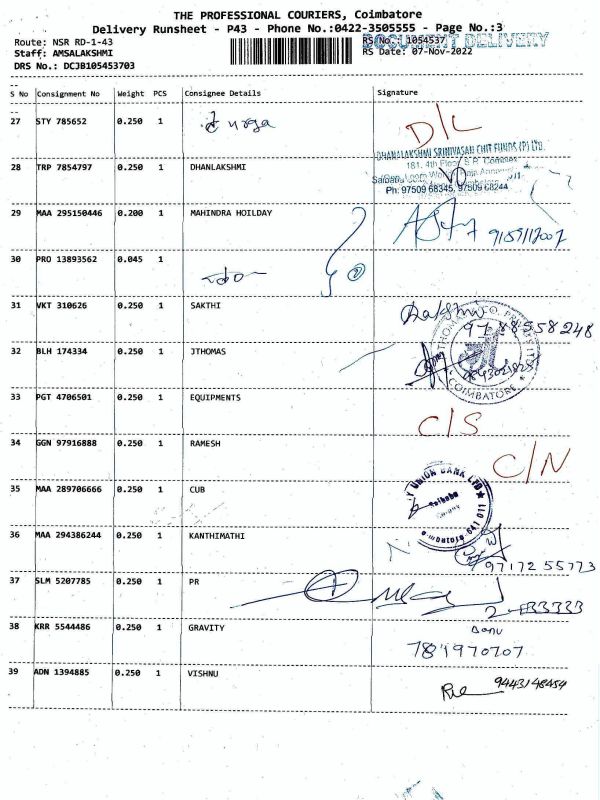 THE PROFESSIONAL COURIERS, Coimbatore
Delivery Runsheet - P43 - Phone No.:0422-3505555 - Page No.:3
Route: NSR RD-1-43 RS No.: 1054537 DOCUMENT DELIVERY
Staff: AMSALAKSHMI RS Date: 07-Nov-2022
DRS No.: DCJB105453703
S No Consignment No Weight PCS Consignee Details Signature
27 STY 785652 0.250 1 D/L
DHANALAKSHMI SRINIVASAN CHIT FUNDS (P) LTD.
181, 4th Floor, S.R. Complex
28 TRP 7854797 0.250 1 DHANLAKSHMI
Ph: 97509 68345, 97509 68244
29 MAA 295150446 0.200 1 MAHINDRA HOILDAY
30 PRO 13893562 0.045 1
31 VKT 310626 0.250 1 SAKTHI
97 88558248
32 BLH 174334 0.250 1 JTHOMAS
COIMBATORE
33 PGT 4706501 0.250 1 EQUIPMENTS C/S
34 GGN 97916888 0.250 1 RAMESH C/N
35 MAA 289706666 0.250 1 CUB
UNION BANK LTD
641 011
36 MAA 294386244 0.250 1 KANTHIMATHI
97172 55773
37 SLM 5207785 0.250 1 PR
38 KRR 5544486 0.250 1 GRAVITY Banu
781970707
39 ADN 1394885 0.250 1 VISHNU 9443148454